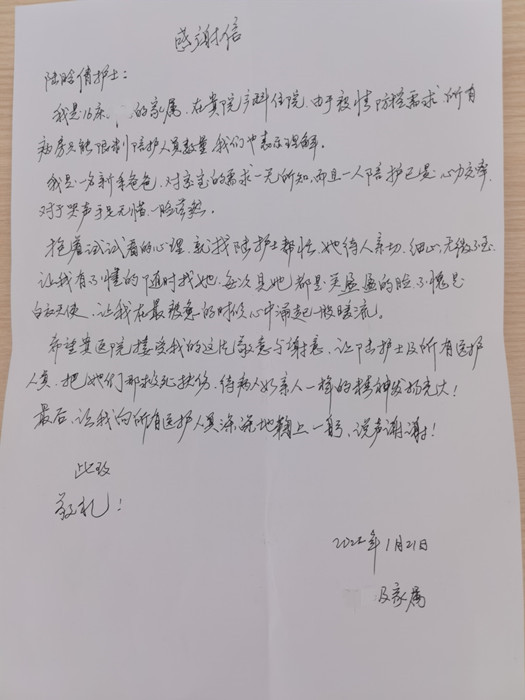 感谢信
陆晗倩护士：
我是16床 的家属，在贵院产科住院，由于疫情防控需求，所有
病房只能限制陪护人员数量，我们也表示理解。
我是一名新手爸爸，对宝宝的需求一无所知，而且一人陪护已是心力交瘁，
对于哭声手足无措、一脸茫然。
抱着试试看的心理，就找陆护士帮忙，她待人亲切、细心、无微不至、
让我有不懂的随时找她，每次见她都是笑盈盈的脸，不愧是
白衣天使，让我在最疲惫的时候心中涌起一股暖流。
希望贵医院接受我的这片敬意与谢意，让陆护士及所有医护
人员，把她们那救死扶伤、待病人如亲人一样的精神发扬光大！
最后，让我向所有医护人员深深地鞠上一躬，说声谢谢！
此致
敬礼！
2022年1月21日
及家属